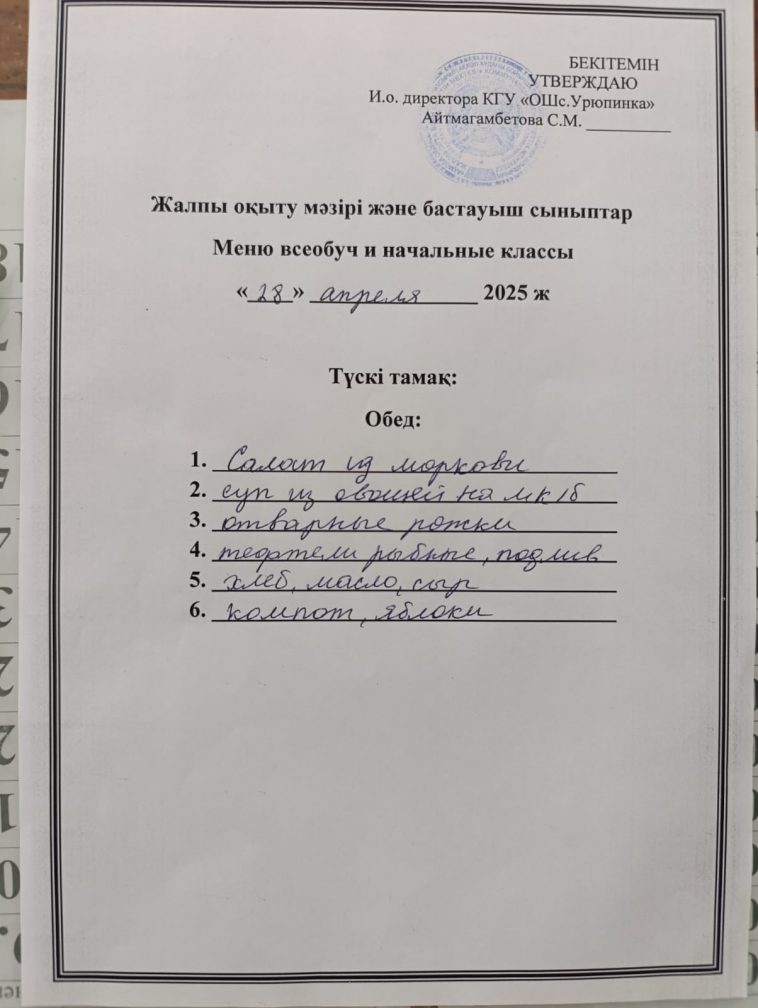 БЕКІТЕМІН
УТВЕРЖДАЮ
И.о. директора КГУ «ОШс.Урюпинка»
Айтмагамбетова С.М. __________
Жалпы оқыту мәзірі және бастауыш сыныптар
Меню всеобуч и начальные классы
«28» апреля 2025 ж
Түскі тамақ:
Обед:
1. Салат из моркови
2. суп из овощей на мк/б
3. отварные рожки
4. тефтели рыбные, подлив
5. хлеб, масло, сыр
6. компот, яблоки